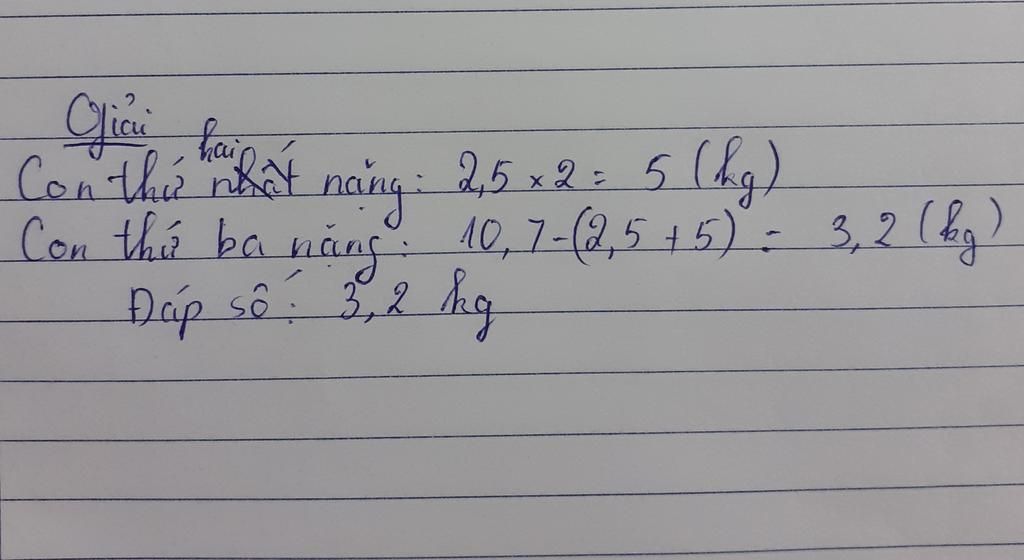 Giải
Con thứ hai nặng: 2,5 × 2 = 5 (kg)
Con thứ ba nặng: 10,7-(2,5 + 5) = 3,2 (kg)
Đáp số: 3,2 kg